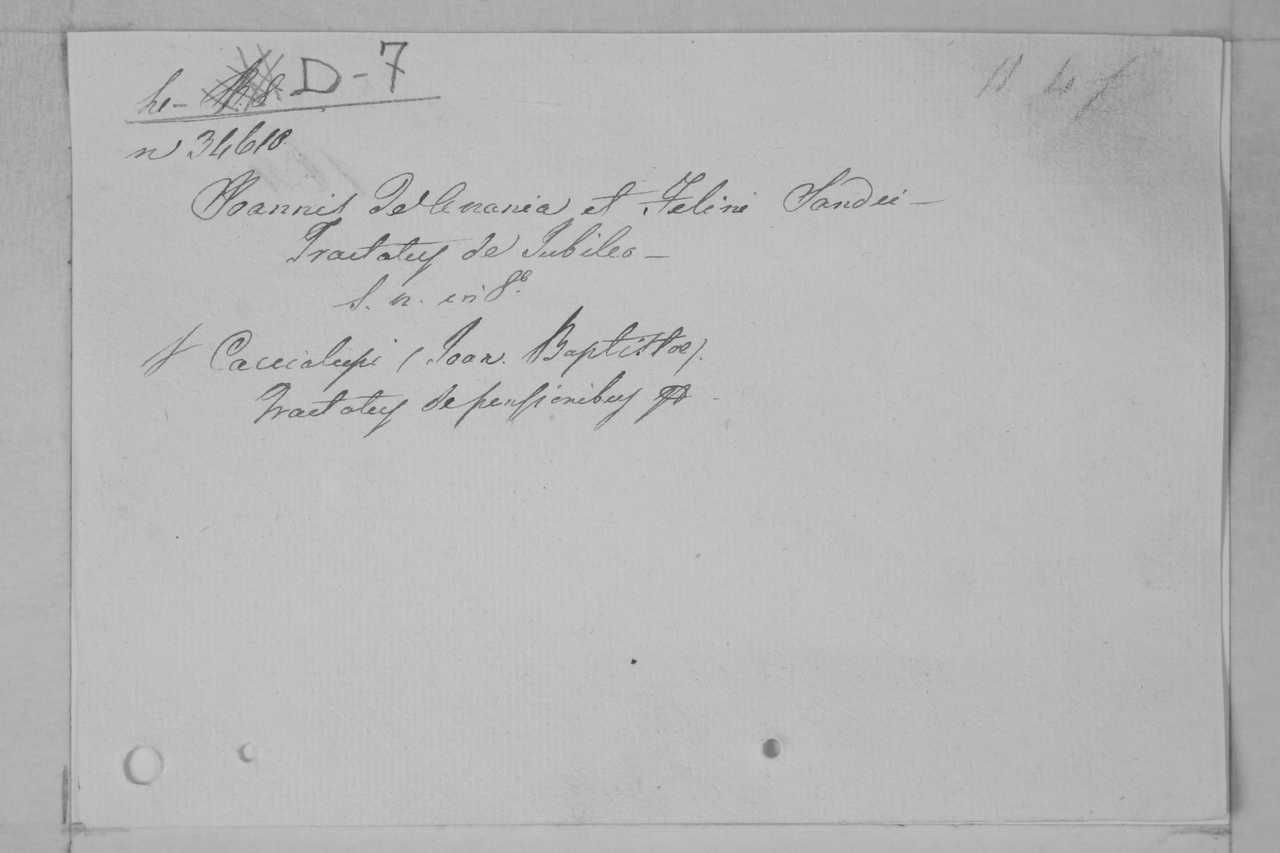 h- D-7
n 34610
Joannis de Anania et Felini Sandei -
Tractatus de Jubileo -
S. n. in 8º.
Caccialupi (Joan. Baptistae).
Tractatus de pensionibus